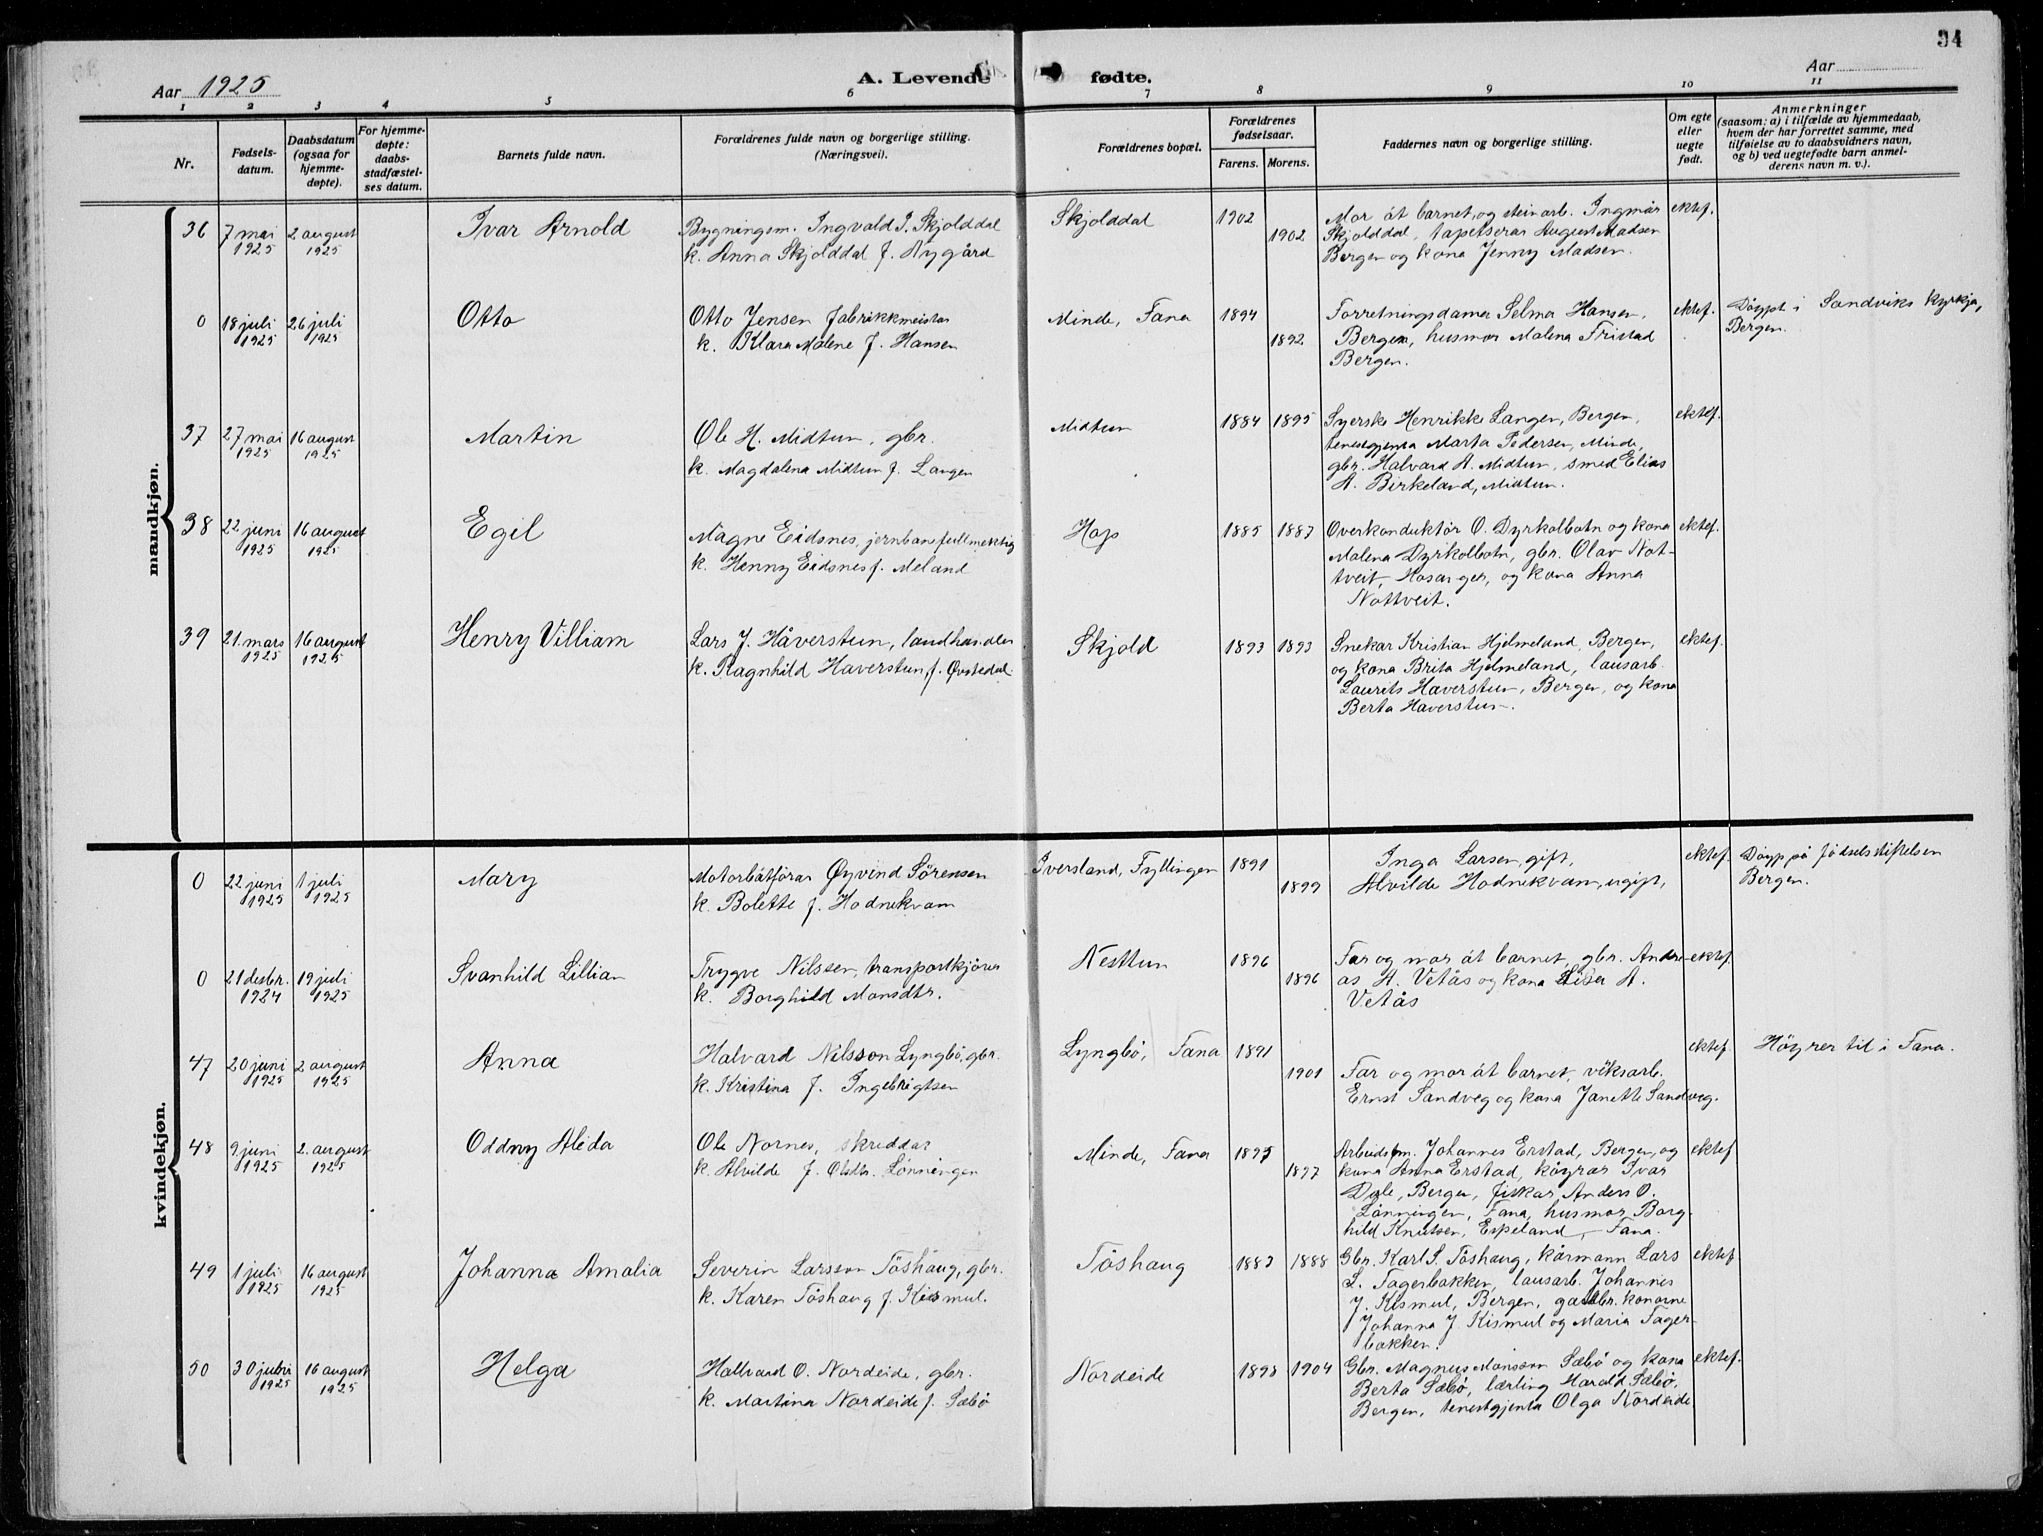 34
Aar 1925
A. Levende fødte.
Aar
1 2 3 4 5 6 7 8 9 10 11
Nr.
Fødsels-
datum.
Daabsdatum
(ogsaa for
hjemme-
døpte).
For hjemme-
døpte:
daabs-
stadfæstel-
ses datum.
Barnets fulde navn.
Forældrenes fulde navn og borgerlige stilling.
(Næringsvei).
Forældrenes bopæl.
Forældrenes
fødselsaar.
Farens. Morens.
Faddernes navn og borgerlige stilling.
Om egte
eller
uegte
født.
Anmerkninger
(saasom: a) i tilfælde av hjemmedaab,
hvem der har forrettet samme, med
tilføielse av to daabsvidners navn,
og b) ved uegtefødte barn anmel-
derens navn m. v.).
mandkjøn.
36 7 mai 1925 2 august 1925 Ivar Arnold
Bygningsm. Ingvald I. Skjolddal
k. Anna Skjolddal f. Nygård
Skjolddal 1902 1902
Mor åt barnet, og steinarb. Ingmar
Skjolddal, tapetserar August Madsen
Bergen og kona Jenny Madsen.
ektef.
0 18 juli 1925 26 juli 1925 Otto
Otto Jensen fabrikkmeister
k. Klara Malene f. Hansen
Minde, Fana 1894 1892
Forretningsdamer Selma Hansen,
Bergen, husmor Malena Fristad
Bergen.
ektef.
Döypt i Sandviks kyrkja,
Bergen.
37 27 mai 1925 16 august 1925 Martin
Ole H. Midtun, gbr.
k. Magdalena Midtun f. Langen
Midtun 1884 1895
Syerske Henrikke Langen, Bergen,
tenestgjenta Marta Pedersen, Minde,
gbr. Halvard A. Midtun, smed Elias
A. Birkeland, Midtun.
ektef.
38 22 juni 1925 16 august 1925 Egil
Magne Eidsnes, jernbanefullmektig
k. Henny Eidsnes f. Meland
Hop 1885 1887
Overkonduktör O. Dyrkolbotn og kona
Malena Dyrkolbotn, gbr. Olav Not-
tveit, Hosanger, og kona Anna
Nottveit.
ektef.
39 21. mars 1925 16 august 1925 Henry Villiam
Lars J. Håverstun, landhandler
k. Ragnhild Haverstun, f. Øvstedal
Skjold 1893 1893
Snekar Kristian Hjelmeland, Bergen,
og kona Brita Hjelmeland, lausarb.
Laurits Haverstun, Bergen, og kona
Berta Haverstun.
ektef.
kvindekjøn.
0 22 juni 1925 1 juli 1925 Mary
Motorbåtförar Øyvind Sörensen
k. Bolette f. Hodnekvam
Iversland, Fyllingen 1891 1899
Inga Larsen, gift,
Alvilde Hodnekvam, ugift,
ektef.
Döyp på Födselsstiftelsen
Bergen.
0 21 desbr. 1924 19 juli 1925 Svanhild Lillian
Trygve Nilssen, transportkjörer
k. Borghild Monsdtr.
Nesttun 1896 1896
Far og mor åt barnet, gbr. Andre-
as A. Vetås og kona Lisa A.
Vetås
ektef.
47 20 juni 1925 2 august 1925 Anna
Halvard Nilsson Lyngbö, gbr.
k. Kristina f. Ingebrigtsen
Lyngbö, Fana 1891 1901
Far og mor åt barnet, verksarb.
Ernst Sandveg og kona Janette Sandveg.
ektef.
Höyrer til i Fana.
48 9 juni 1925 2. august 1925 Oddny Alida
Ole Nornes, skreddar
k. Alvilde f. Olsdtr. Lönningen
Minde, Fana 1895 1897
Arbeidsm. Johannes Erstad, Bergen, og
kona Anna Erstad, köyrar Ivar
Dale, Bergen, fiskar Anders O.
Lönningen, Fana, husmor Borg-
hild Knutsen, Espeland, Fana.
ektef
49 1 juli 1925 16 august 1925 Johanna Amalia
Severin Larsson Töshaug, gbr.
k. Karen Töshaug f. Kismul.
Töshaug 1883 1888
Gbr. Karl S. Töshaug, kårmann Lars
L. Fagerbakken, lausarb. Johannes
J. Kismul, Bergen, gardbr. konorne
Johanna J. Kismul og Maria Fager-
bakken.
ektef
50 30 juni 1925 16 august 1925 Helga
Hallvard O. Nordeide, gbr.
k. Martina Nordeide f. Sæbö
Nordeide 1898 1904
Gbr. Magnus Monsson Sæbö og kona
Berta Sæbö, lærling Harald Sæbö,
Bergen, tenestgjenta Olga Nordeide
ektef.